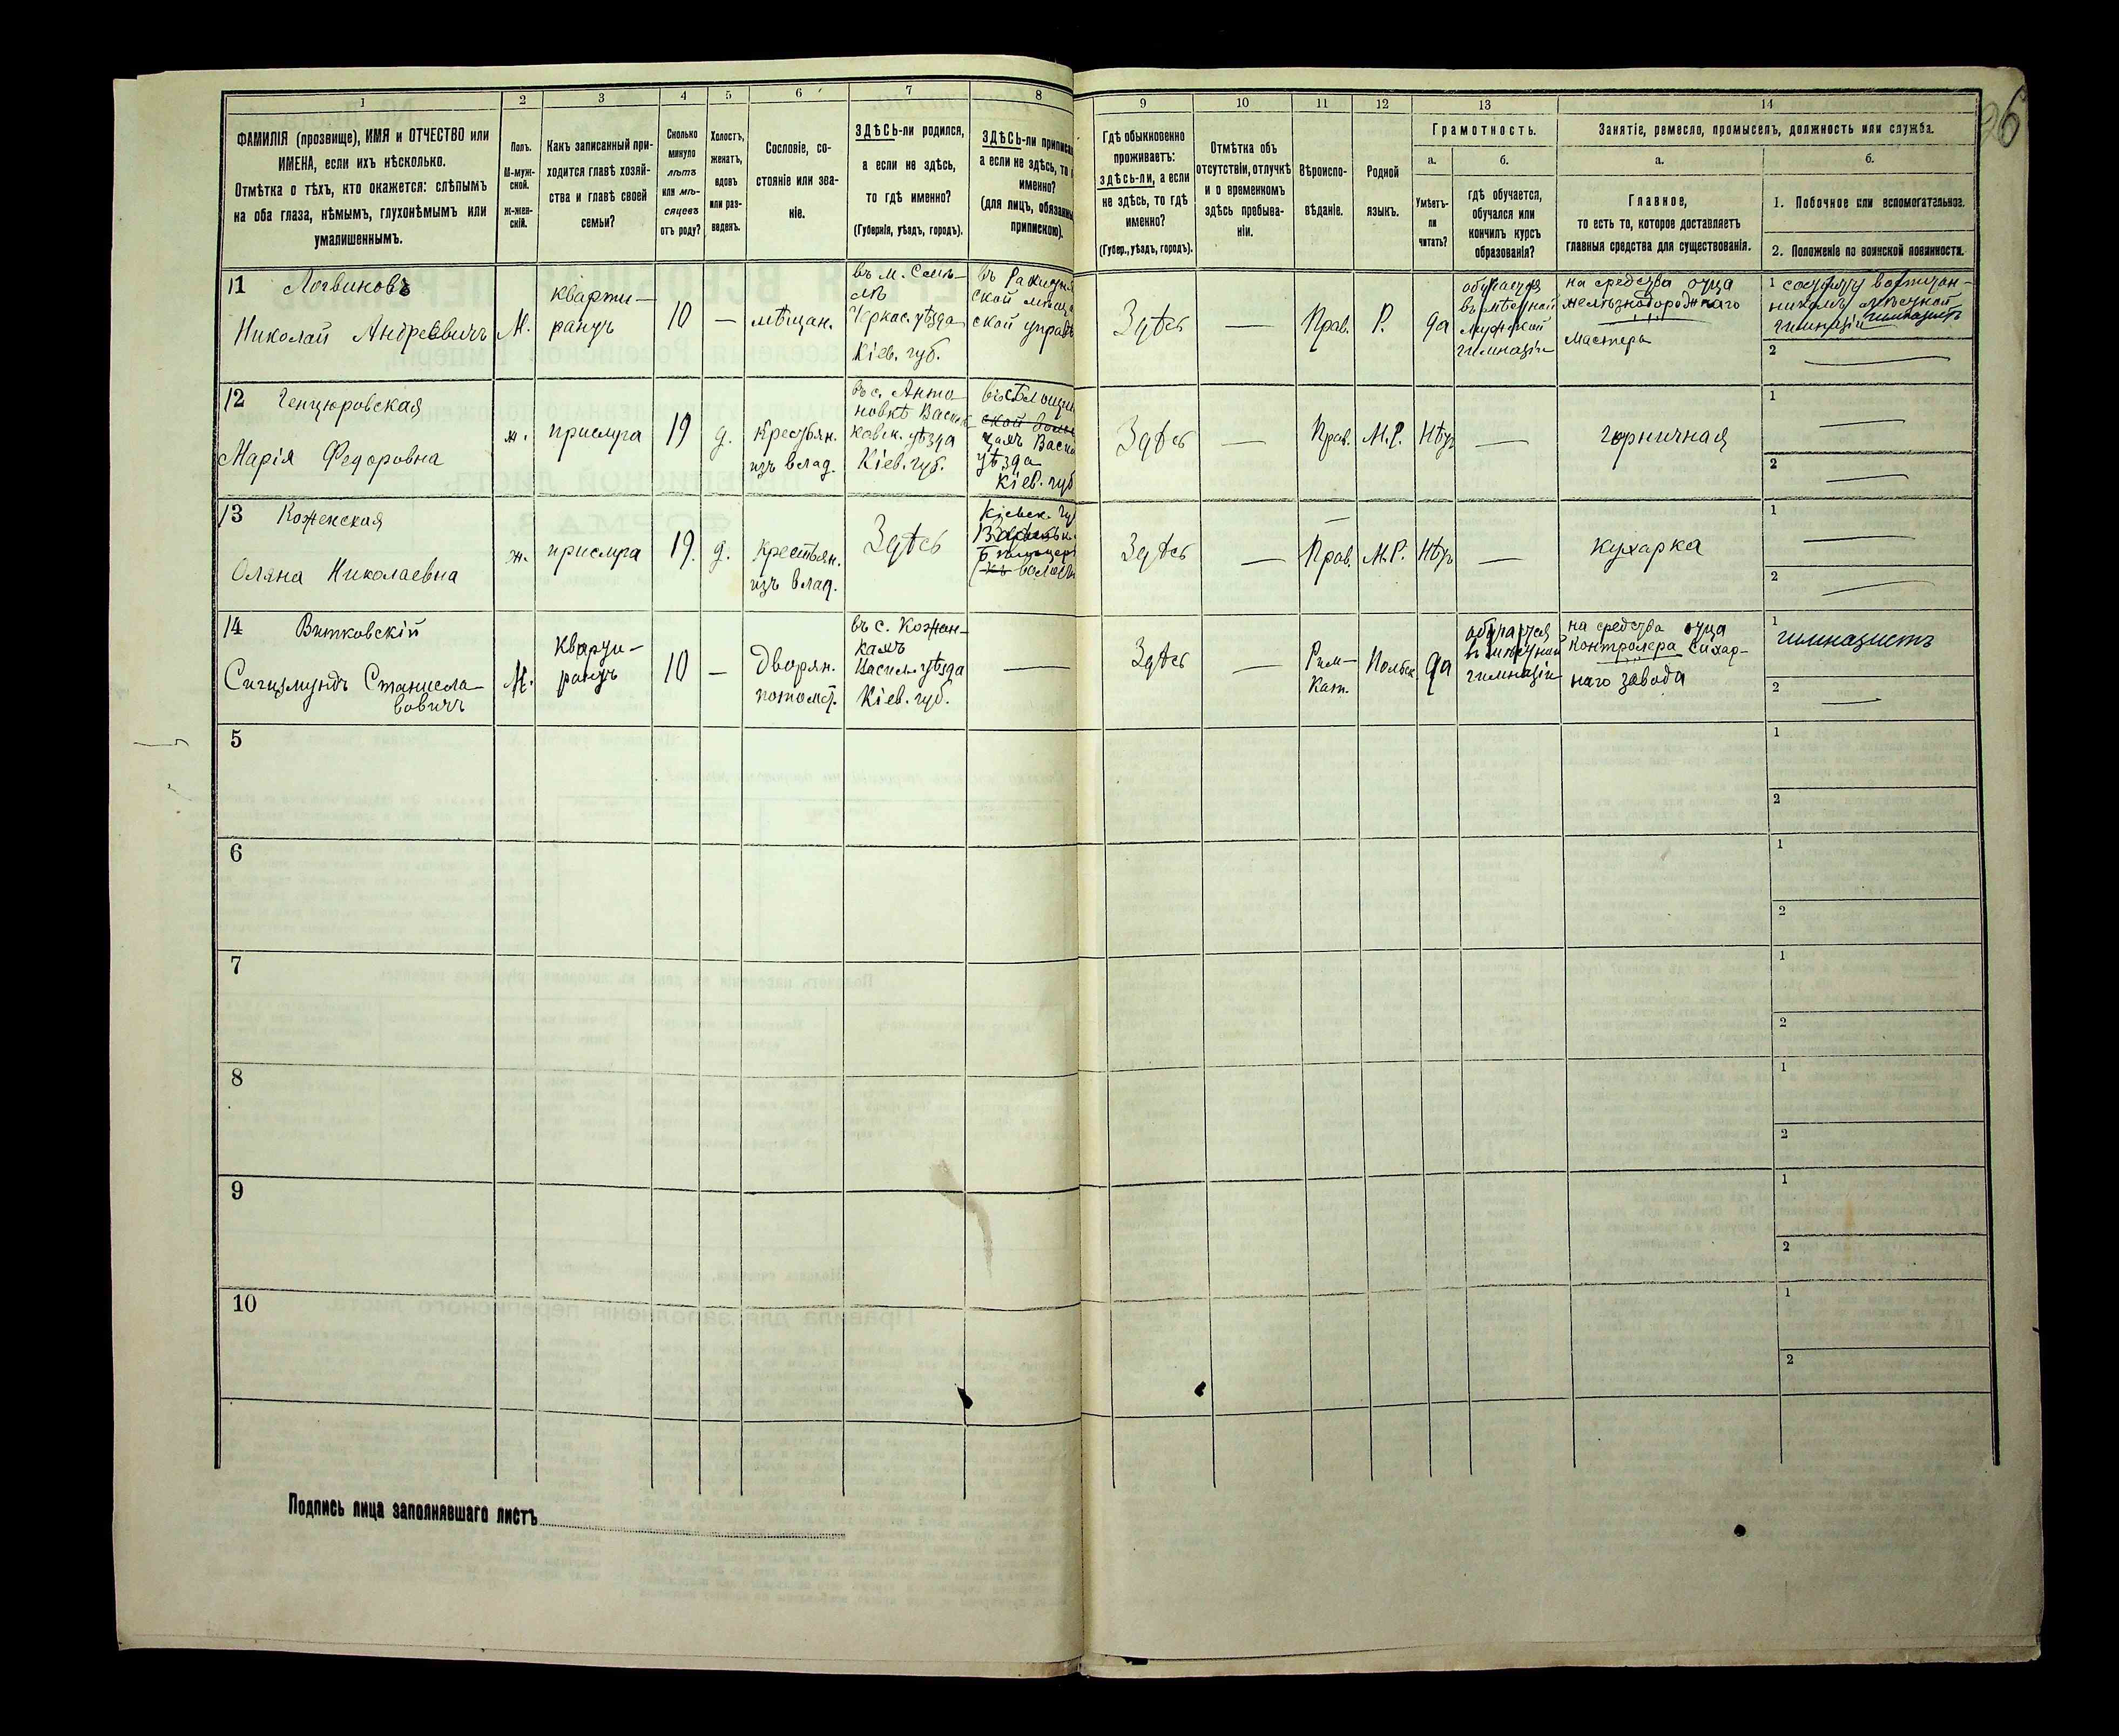 1
2
3
4
5
6
7
8
9
10
11
12
13
14
ФАМИЛІЯ (прозвище), ИМЯ и ОТЧЕСТВО или
ИМЕНА, если ихъ нѣсколько.
Отмѣтка о тѣхъ, кто окажется: слѣпымъ
на оба глаза, нѣмымъ, глухонѣмымъ или
умалишеннымъ.
Полъ.
М-муж-
ской.
ж-жен-
скій.
Какъ записанный при-
ходится главѣ хозяй-
ства и главѣ своей
семьи?
Сколько
минуло
лѣтъ
или мѣ-
сяцевъ
отъ роду?
Холостъ,
женатъ,
вдовъ
или раз-
веденъ.
Сословіе, со-
стояніе или зва-
ніе.
ЗДѢСЬ-ли родился,
а если не здѣсь,
то гдѣ именно?
(Губернія, уѣздъ, городъ).
ЗДѢСЬ-ли приписа
а если не здѣсь, то
именно?
(для лицъ, обязанн
припискою).
Гдѣ обыкновенно
проживаетъ:
здѣсь-ли, а если
не здѣсь, то гдѣ
именно?
(Губер., уѣздъ, городъ).
Отмѣтка объ
отсутствіи, отлучкѣ
и о временномъ
здѣсь пребыва-
ніи.
Вѣроиспо-
вѣданіе.
Родной
языкъ.
Грамотность.
а.
б.
Умѣетъ-
ли
читать?
гдѣ обучается,
обучался или
кончилъ курсъ
образованія?
Занятіе, ремесло, промыселъ, должность или служба.
а.
б.
Главное,
то есть то, которое доставляетъ
главныя средства для существованія.
1. Побочное или вспомогательное.
2. Положеніе по воинской повинности.
11 Логвиновъ
Николай Андреевичъ
М.
кварти-
рантъ
10
—
мѣщан.
въ м. Смѣ-
лѣ
Черкас. уѣзда
Кіев. губ.
ской управѣ
Здѣсь
—
Прав.
Р.
да
обучается
въ мѣстной
мужской
гимназіи
на средства отца
желѣзнодорожнаго
мастера
1
гимназіи гимназистъ
2 —
12
Марія Федоровна
ж.
прислуга
19
д.
Крестьян.
изъ влад.
въ с. Анто
новкѣ Васил
ковск. уѣзда
Кіев. губ.
уѣзда
Кіев. губ
Здѣсь
—
Прав.
М.Р.
Нѣтъ
—
горничная
1 —
2 —
13 Коженская
Оляна Николаевна
ж.
прислуга
19.
д.
Крестьян.
изъ влад.
Здѣсь
Кіевск. гу
Здѣсь
—
Прав.
М.Р.
Нѣтъ
—
кухарка
1 —
2 —
14 Витковскій
Сигизмундъ Станисла-
вовичъ
М.
кварти-
рантъ
10
—
Дворян.
потомст.
въ с. Кожан-
кахъ
Васил. уѣзда
Кіев. губ.
—
Здѣсь
—
Рим-
Кат.
Польск.
да
обучается
въ мѣстной
гимназіи
на средства отца
контролера сахар-
наго завода
1 гимназистъ
2 —
5
1
2
6
1
2
7
1
2
8
1
2
9
1
2
10
1
2
Подпись лица заполнявшаго листъ